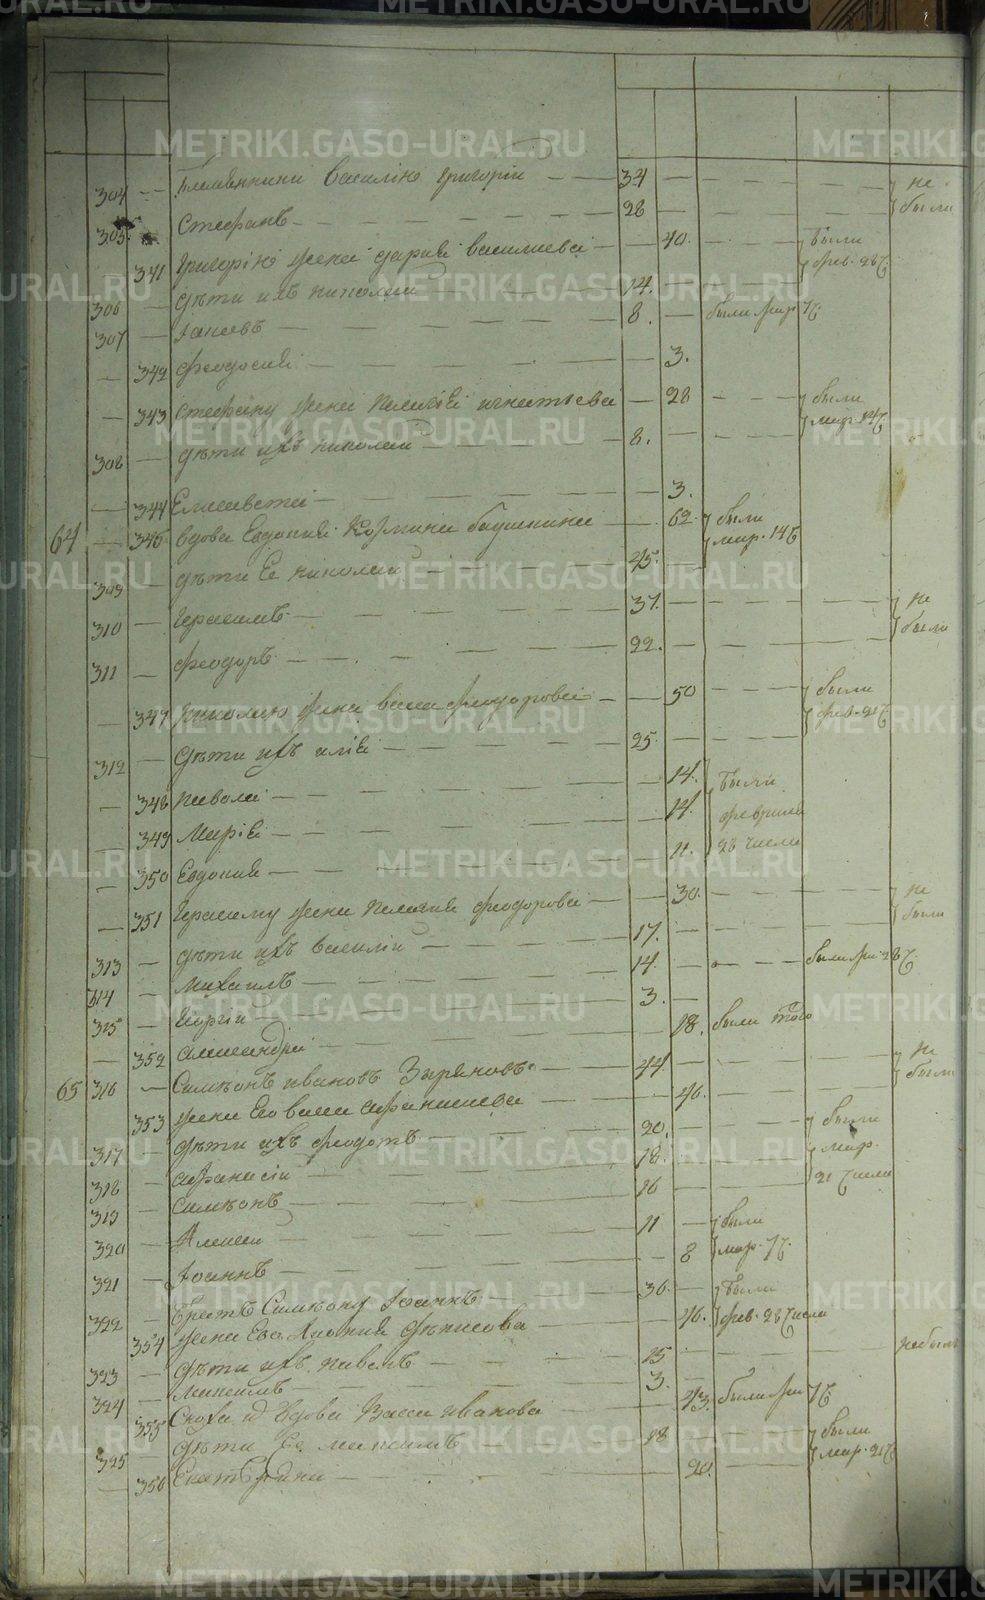 METRIKI.GASO-URAL.RU
304 — Племянники Василию Григорій — 34 — не
305 — Стефанъ — 28 — были
341 Григорію жена Дарія Васильева — 40 — были
306 — дѣти ихъ Николай — 14 — фев. 28 ч
307 — Іаковъ — 8 — были мар 7 ч
— 342 Феодосія — 3.
— 343 Стефану жена Пелагія Игнатьева — 28 — были
308 — дѣти ихъ Николай — 8. — мар. 14 ч
— 344 Елисавета — 3.
64 — 345 вдова Евдокія Козмина — 62 были
мар. 14 ч
309 — дѣти Ее Николай — 45.
310 — Герасимъ — 37. — не
311 — Феодоръ — 22. — были
— 347 Николаю жена Васса Феодорова — 50 — были
фев. 21 ч
312 — дѣти ихъ Илія — 25.
— 348 Павола — 14. были
— 349 Марія — 14. февраля
— 350 Евдокия — 11. 28 числа
— 351 Герасиму жена Пелагия Феодорова — 30. — не
были
313 — дѣти ихъ Василій — 17.
314 — Михаилъ — 14. — были 28 ч.
315 — Георгій — 3.
— 352 Александра — 18. были того
65 316 — Симеонъ Ивановъ Зыряновъ — 44 — не
были
353 жена Его Васса Афанасиева — 46.
317 — дѣти ихъ Феодотъ — 20. — были
318 — Афанасій — 18. — мар.
319 — Симеонъ — 16 — 21 числа
320 — Алексей — 11 — были
321 — Іоаннъ — 8 мар. 7 ч.
322 — Братъ Симеону Іоаннъ — 36. — были
354 жена Его Евдокия Денисова — 46. фев. 28 числа
323 — дѣти ихъ Павелъ — 15 — не были
324 — Максимъ — 3.
355 Сноха и вдова Васса Иванова — 43. были 7 ч
325 — дѣти Ее Максимъ — 18 — были
— 356 Екатерина — 20. — мар. 21 ч